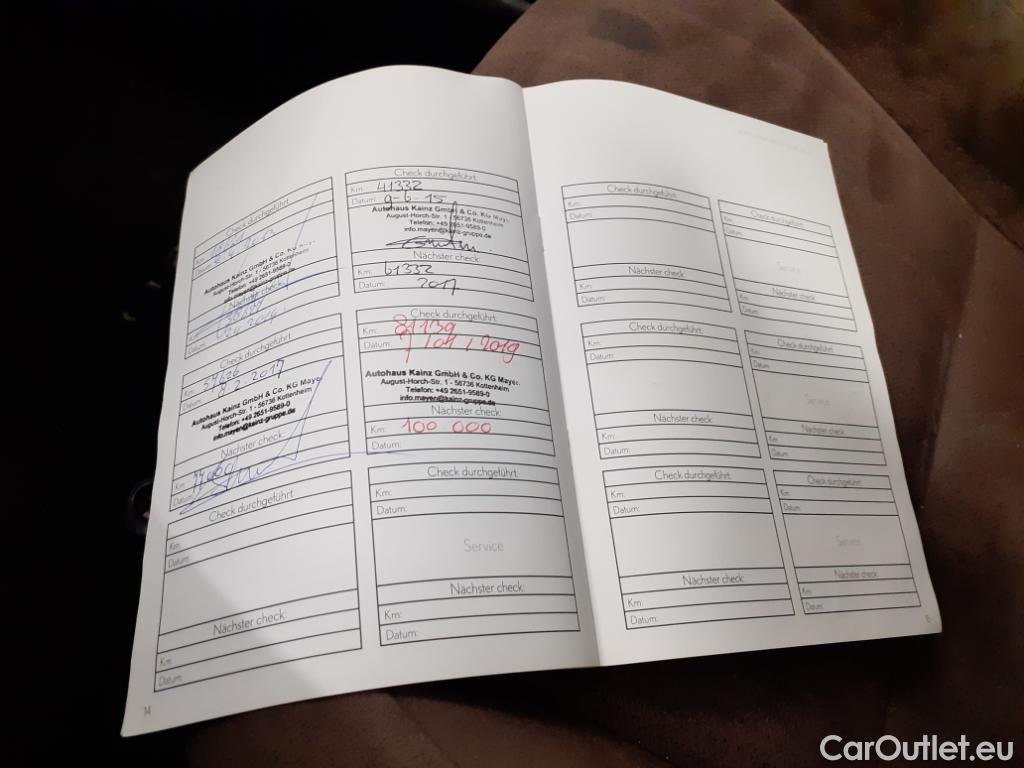 Check durchgeführt
Km:
Datum:
Autohaus Kainz GmbH & Co. KG Mayen
August-Horch-Str. 1 - 56736 Kottenheim
Telefon: +49 2651-9589-0
info.mayen@kainz-gruppe.de
Nächster check:
Km:
Datum:
Check durchgeführt
Km: 41332
Datum: 9-6-15
Autohaus Kainz GmbH & Co. KG Mayen
August-Horch-Str. 1 - 56736 Kottenheim
Telefon: +49 2651-9589-0
info.mayen@kainz-gruppe.de
Nächster check:
Km: 61332
Datum: 2017
Check durchgeführt
Km: 57626
Datum: 2.2017
Autohaus Kainz GmbH & Co. KG Mayen
August-Horch-Str. 1 - 56736 Kottenheim
Telefon: +49 2651-9589-0
info.mayen@kainz-gruppe.de
Nächster check:
Km:
Datum:
Check durchgeführt:
Km: 81139
Datum: 1/04/2019
Autohaus Kainz GmbH & Co. KG Mayen
August-Horch-Str. 1 - 56736 Kottenheim
Telefon: +49 2651-9589-0
info.mayen@kainz-gruppe.de
Nächster check:
Km: 100 000
Datum:
Check durchgeführt:
Km:
Datum:
Nächster check:
Km:
Datum:
Check durchgeführt:
Km:
Datum:
Service
Nächster check:
Km:
Datum:
14
Check durchgeführt:
Km:
Datum:
Nächster check:
Km:
Datum:
Check durchgeführt:
Km:
Datum:
Service
Nächster check:
Km:
Datum:
Check durchgeführt:
Km:
Datum:
Nächster check:
Km:
Datum:
Check durchgeführt:
Km:
Datum:
Service
Nächster check:
Km:
Datum:
Check durchgeführt:
Km:
Datum:
Nächster check:
Km:
Datum:
Check durchgeführt:
Km:
Datum:
Service
Nächster check:
Km:
Datum:
15
CarOutlet.eu